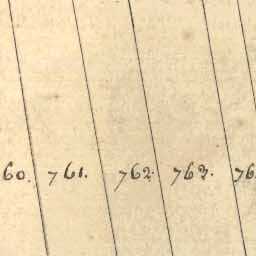 60. 761. 762. 763. 76